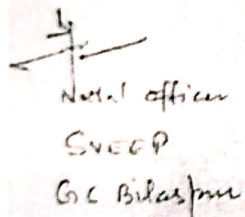 Nodal officer
SVEEP
GC Bilaspur